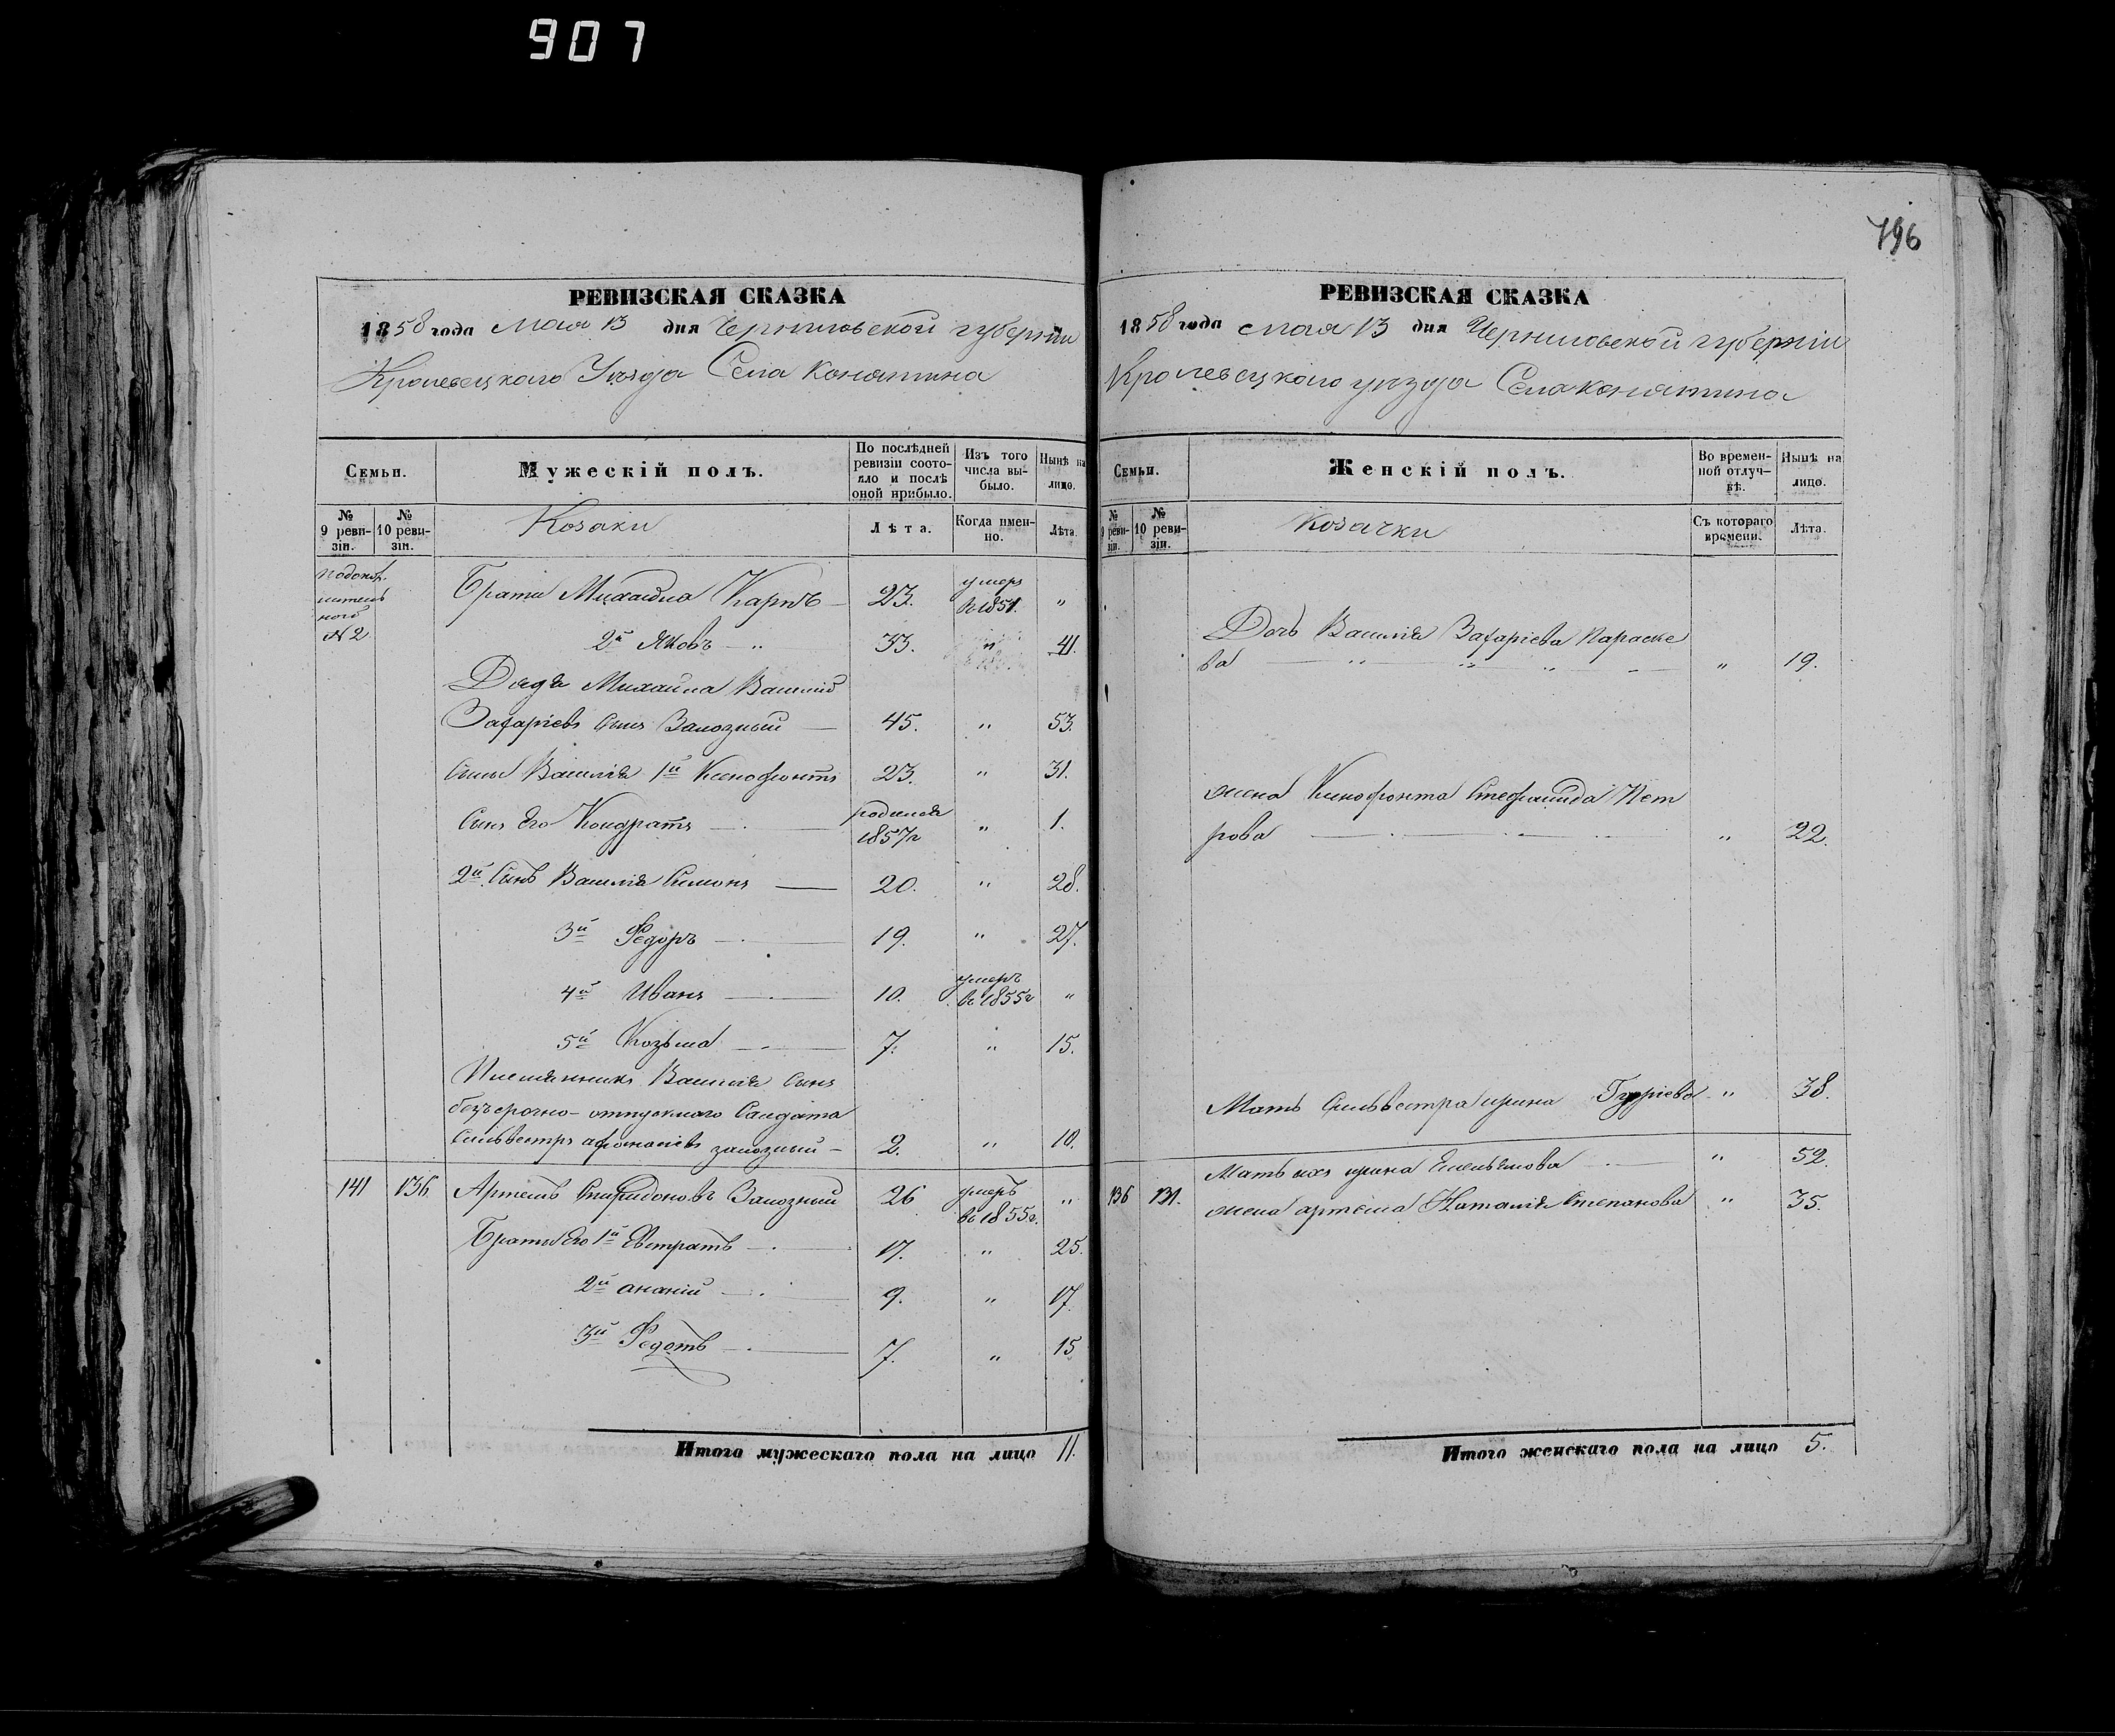 907
796
РЕВИЗСКАЯ СКАЗКА
1858 года Мая 13 дня Черниговской губерніи
Кролевецкаго Уѣзда Села Конятина
Семьи. Мужескій полъ. По послѣдней ревизіи состояло и послѣ оной прибыло. Изъ того числа выбыло. Нынѣ на лицо.
№ 9 ревизіи. № 10 ревизіи. Козаки Лѣта. Когда именно. Лѣта.
№ 2
Браты Михаила Карпъ 23. умеръ въ 1851. "
2й Яковъ " 33. " 41.
Дядя Михаила Василий
Захаріевъ сынъ Залозный 45. " 53.
Сыны Василія 1й Ксенофонтъ 23. " 31.
Сынъ его Кондратъ родился 1857г " 1.
2й Сынъ Василія Симонъ 20. " 28.
3й Федоръ 19. " 27.
4й Иванъ 10. умеръ въ 1855г "
5й Козьма 7. " 15.
Племянникъ Василія сынъ
безъсрочно-отпускнаго Салдата
Сильвестръ Афонасіевъ залозный 2. " 10.
141 136 Артемъ Спиридоновъ Залозный 26 умеръ въ 1855г. "
Браты его 1й Евстратъ 17. " 25.
2й Ананій 9. " 17.
3й Федотъ 7. " 15
Итого мужескаго пола на лицо 11.
РЕВИЗСКАЯ СКАЗКА
1858 года Мая 13 дня Черниговской губерніи
Кролевецкаго уѣзда Села Конятина
Семьи. Женскій полъ. Во временной отлучкѣ. Нынѣ на лицо.
№ 9 ревизіи. № 10 ревизіи. Козачки Съ котораго времени. Лѣта.
Дочь Василія Захаріева Параске
ва " 19.
жена Ксенофонта Стефанида Пет
рова " 22.
Мать Сильвестра ирина Гурріева " 38.
Мать ихъ ирина Емельянова " 52.
136 131. жена артема Наталія Степанова " 35.
Итого женскаго пола на лицо 5.